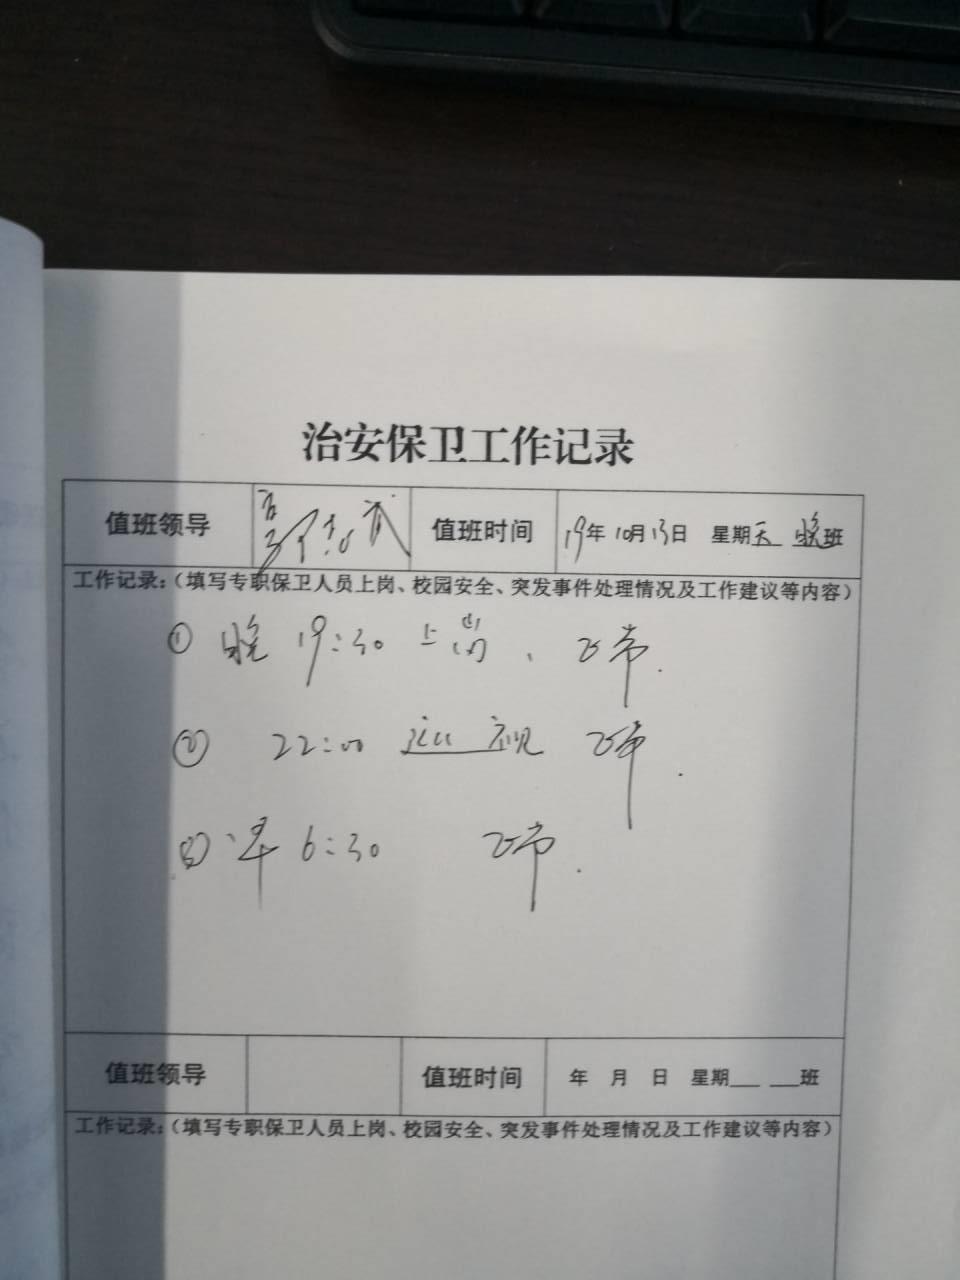 治安保卫工作记录
值班领导 值班时间 19年10月13日 星期天 晚班
工作记录:(填写专职保卫人员上岗、校园安全、突发事件处理情况及工作建议等内容)
① 晚 19:30 上岗、正常.
② 22:00 巡视 正常.
③ 早 6:30 正常.
值班领导 值班时间 年 月 日 星期___ ___班
工作记录:(填写专职保卫人员上岗、校园安全、突发事件处理情况及工作建议等内容)